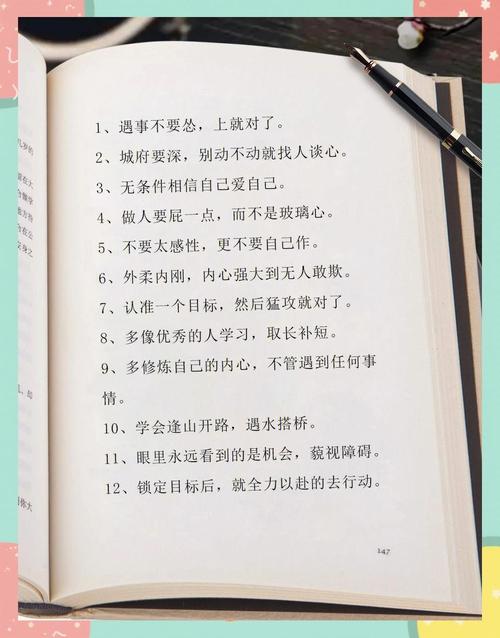 岁的
在大
在公
身之
却
你大
1、遇事不要怂，上就对了。
2、城府要深，别动不动就找人谈心。
3、无条件相信自己爱自己。
4、做人要屁一点，而不是玻璃心。
5、不要太感性，更不要自己作。
6、外柔内刚，内心强大到无人敢欺。
7、认准一个目标，然后猛攻就对了。
8、多像优秀的人学习，取长补短。
9、多修炼自己的内心，不管遇到任何事
情。
10、学会逢山开路，遇水搭桥。
11、眼里永远看到的是机会，藐视障碍。
12、锁定目标后，就全力以赴的去行动。
147